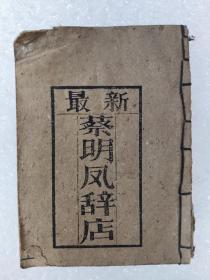 最新
蔡明凤辞店